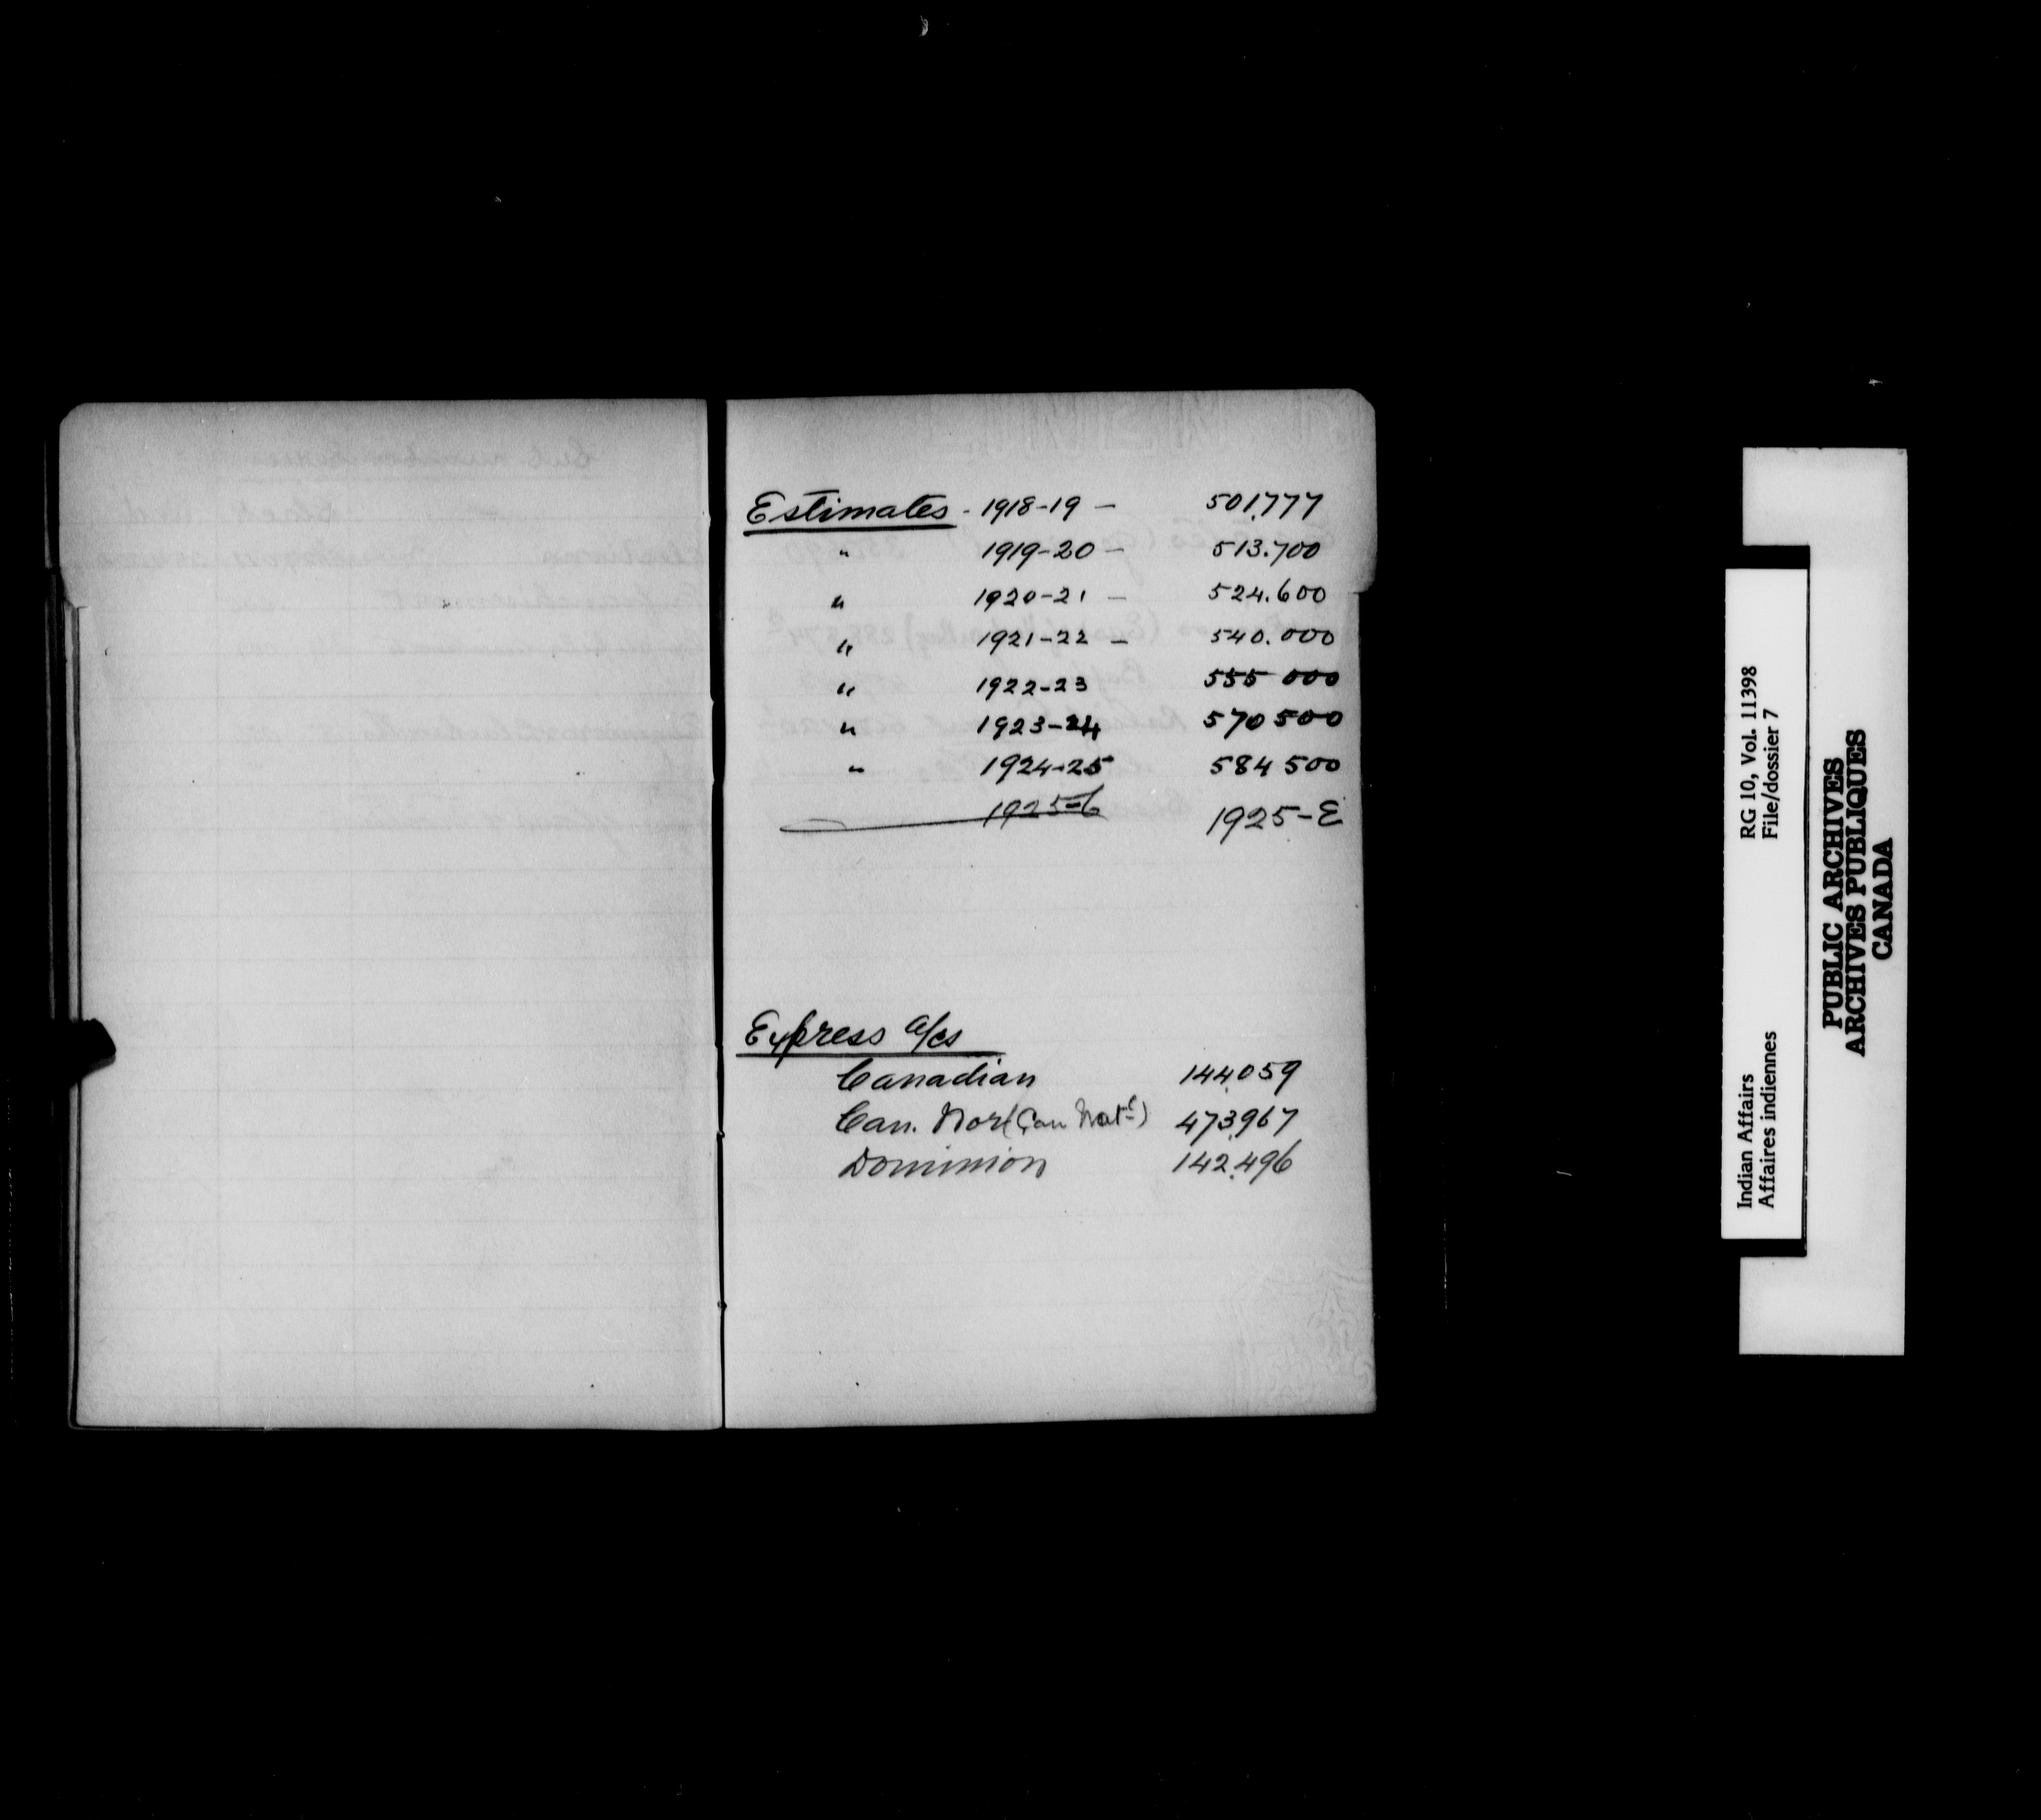 Estimates - 1918-19 - 501,777
" 1919-20 - 513.700
" 1920-21 - 524.600
" 1921-22 - 540.000
" 1922-23 555 000
" 1923-24 570 500
" 1924-25 584 500
1925-6 1925-E
Express a/cs
Canadian 144,059
Can. Nor (Can Nat'l) 473,967
Dominion 142,496
Indian Affairs RG 10, Vol. 11398
Affaires indiennes File/dossier 7
PUBLIC ARCHIVES
ARCHIVES PUBLIQUES
CANADA